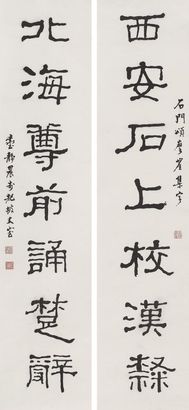 西安石上校漢隸
石門頌摩崖集字
北海尊前誦楚辭
臺靜農書於龍坡丈室